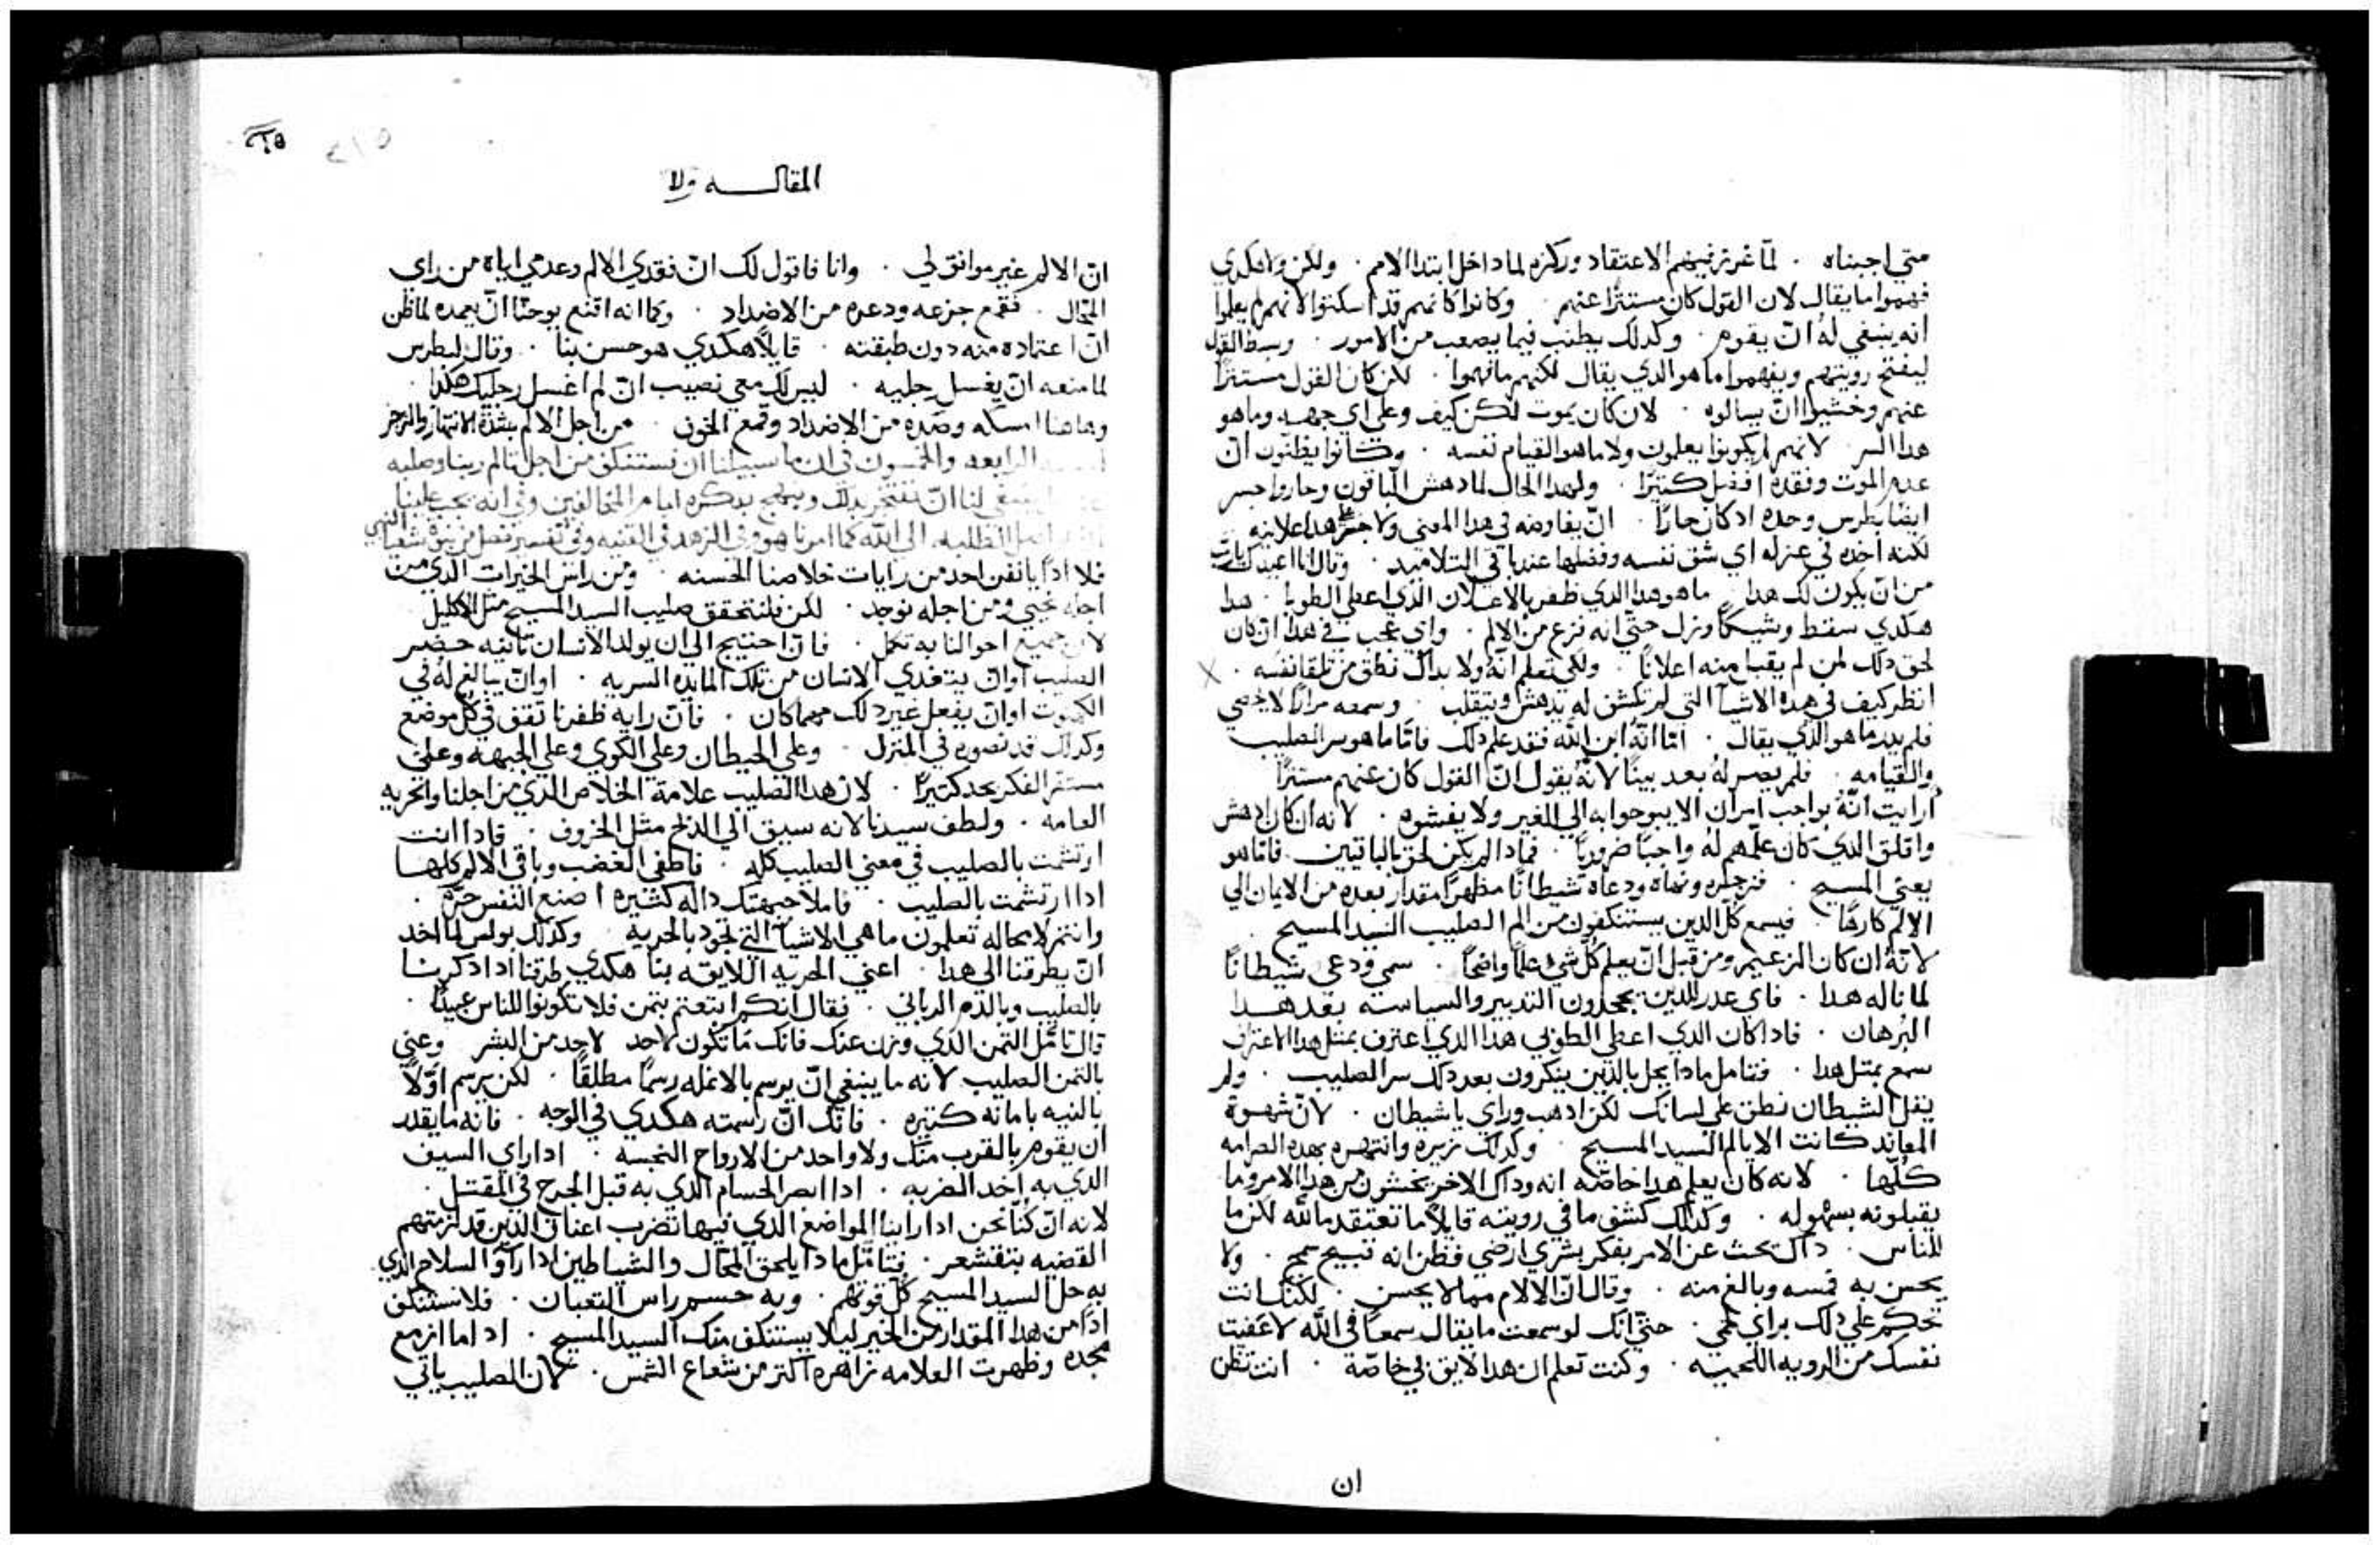 متي اجبناه . لما غرز فيهم الاعتقاد وركزه لما داخل ابتدا الالام . ولكن ولا هكدي
فهموا ما يقال لان القول كان مستترًا عنهم وكانوا كانهم قد اسكتوا لانهم لم يعلموا
انه ينبغي له ان يقوم . وكدلك يطنب فيما يصعب من الامور . وبسط القول
ليفتح رويتهم ويفهموا ما هو الدي يقال لكنهم ما فهموا . لان كان القول مستترًا
عنهم وخشيوا ان يسالوه . لان كان يموت لكن كيف وعلي اي جهه وما هو
هدا السر لانهم لم يكونوا يعلمون ولا ما هو القيام نفسه . وكانوا يظنون ان
عدم الموت وفقده افضل كتيرًا . ولهدا الحال لما دهش الباقون وحاروا جسر
ايضًا بطرس وحده اد كان حارًا . ان يفاوضه في هدا المعني ولا جسر هدا علانيه
لكنه اخده في عزله اي شق نفسه وفصلها عند باقي التلاميد . وقال انا اعيدك يارب
من ان يكون لك هدا ما هو هدا الدي ظفر بالاعلان الدي اعطي الطوبا . هدا
هكدي سقط وشيكًا ونزل حتي انه فزع من الالم . واي عجب في هدا ان كان
لحق دلك لمن لم يقبل منه اعلانًا . ولكي تعلم انه ولا بداك نطق من تلقا نفسه .
انظر كيف في هده الاشيا التي لم تكشف له يدهش ويتقلب . وسمعه مرارًا لا تحصي
فلم يدر ما هو الدي يقال . اما انه ابن الله فقد علم دلك فاما ما هو سر الصليب
والقيامه . فلم يصر له بعد بينًا لانه يقول ان القول كان عنهم مستترًا
ارايت انه بواجب امر ان لا يبوحوا به الي الغير ولا يفشوه . لانه ان كان ادهش
واقلق الدي كان علمهم له واجبًا ضروريًا . فمادا لم يكن لحق بالباقيين . فاما هو
يعني المسيح . فزجره ونهاه ودعاه شيطانًا مظهرًا مقدار بعده من الايمان الي
الالم كارهًا . فيسمع كل الدين يستنكفون من الم الصليب السيد المسيح .
لانه ان كان الزعيم ومن قبل ان يعلم كل شي علمًا واضحًا . سمي ودعي شيطانًا
لما ناله هدا . فاي عدر للدين يجحدون التدبير والسياسه بعد هدا
البرهان . فادا كان الدي اعطي الطوبي هدا الدي اعترف بمثل هدا الاعتراف
سمع بمثل هدا . فتامل مادا يحل بالدين ينكرون بعد دلك سر الصليب . ولم
يقل الشيطان نطق علي لسانك لكن ادهب وراي يا شيطان . لان شهوة
المعاند كانت الا يالم السيد المسيح وكدلك زبره وانتهره بهده الصرامه
كلها . لانه كان يعلم هدا خاصه انه وداك الاخر يخشون من هدا الامر وما
يقبلونه بسهوله . وكدلك كشف ما في رويته قايلاً ما تعتقد ما لله لكن ما
للناس . داك بحث عن الامر بفكر بشري ارضي فظن انه قبيح سمج . ولا
يحسن به فمسه وبالغ منه . وقال ان الالام مما لا يحسن . لكنك انت
تحكم علي دلك براي لحمي . حتي انك لو سمعت ما يقال سمعًا في الله لاعفيت
نفسك من الرويه اللحميه . وكنت تعلم ان هدا لايق بي خاصة . انت تظن
ان
المقاله ولا
ان الالم غير موافق لي . وانا فاقول لك ان فقدي الالم وعدمي اياه من راي
المحال . فقمع جزعه ودعره من الاضداد . وكما انه اقنع يوحنا ان يعمده لما ظن
ان اعتماده منه دون طبقته . قايلاً هكدي هو حسن بنا . وقال لبطرس
لما منعه ان يغسل رجليه . ليس لك معي نصيب ان لم اغسل رجليك هكدا .
وهاهنا امسكه وصده من الاضداد وقمع الخوف . من اجل الالم بشدة الانتهار والزجر
الرابعه والخمسون في ان ما سبيلنا ان نستنكف من اجل تالم ربنا وصلبه
ينبغي لنا ان نفتخر بدلك ونبهج بدكره امام المخالفين وفي انه يجب علينا
الطلبه الي الله كما امرنا هو وفي الزهد في القنيه وفي تفسير فصل من نبوة شعيا النبي
فلا ادًا يانفن احد من رايات خلاصنا الحسنه ومن راس الخيرات الدي من
اجله نحيي ومن اجله نوجد . لكن فلنتحقق صليب السيد المسيح مثل الاكليل
لان جميع احوالنا به تكمل . فان احتيج الي ان يولد الانسان تانيه حضر
الصليب اوان يتغدي الانسان من تلك المايده السريه . اوان يبالغ له في
الكهنوت اوان يفعل غير دلك مهما كان . فان رايه ظفرنا تقف في كل موضع
وكدلك قد نصوره في المنزل وعلي الحيطان وعلي الكوي وعلي الجبهه وعلي
مستقر الفكر بجد كتيرًا . لان هدا الصليب علامة الخلاص الدي من اجلنا والحريه
العامه . ولطف سيدنا لانه سيق الي الدبح مثل الخروف . فادا انت
ارتشمت بالصليب في معني الصليب كله . فاطفي الغضب وباقي الالام كلها
ادا ارتشمت بالصليب . فاملا جبهتك داله كتيره اصنع النفس حرة .
وانتم لا محاله تعلمون ما هي الاشيا التي تجود بالحريه وكدلك بولس لما اخد
ان يطرقنا الي هدا . اعني الحريه اللايقه بنا هكدي طرقنا اد ادكرنا
بالصليب وبالدم الرباني . فقال انكم ابتعتم بتمن فلا تكونوا للناس عبيدًا .
قال تامل التمن الدي وزن عنك فانك ما تكون لاحد لاحد من البشر وعني
بالتمن الصليب لانه ما ينبغي ان يرسم بالانمله رسمًا مطلقًا . لكن يرسم اولاً
بالنيه بامانه كتيره . فانك ان رسمته هكدي في الوجه . فانه ما يقدر
ان يقوم بالقرب منك ولا واحد من الارواح النجسه . ادا راي السيف
الدي به اخد الضربه . ادا ابصر الحسام الدي به قبل الجرح في المقتل .
لانه ان كنا نحن ادا راينا المواضع الدي فيها تضرب اعناق الدين قد لزمتهم
القضيه بنقشعر . فتامل مادا يلحق المحال والشياطين ادا راوا السلاح الدي
به حل السيد المسيح كل قوتهم . وبه حسم راس التعبان . فلا نستنكف
ادًا من هدا المقدار من الخير ليلا يستنكف منك السيد المسيح . اد اما ازمع
مجده وظهرت العلامه زاهره اكتر من شعاع الشمس . لان الصليب ياتي